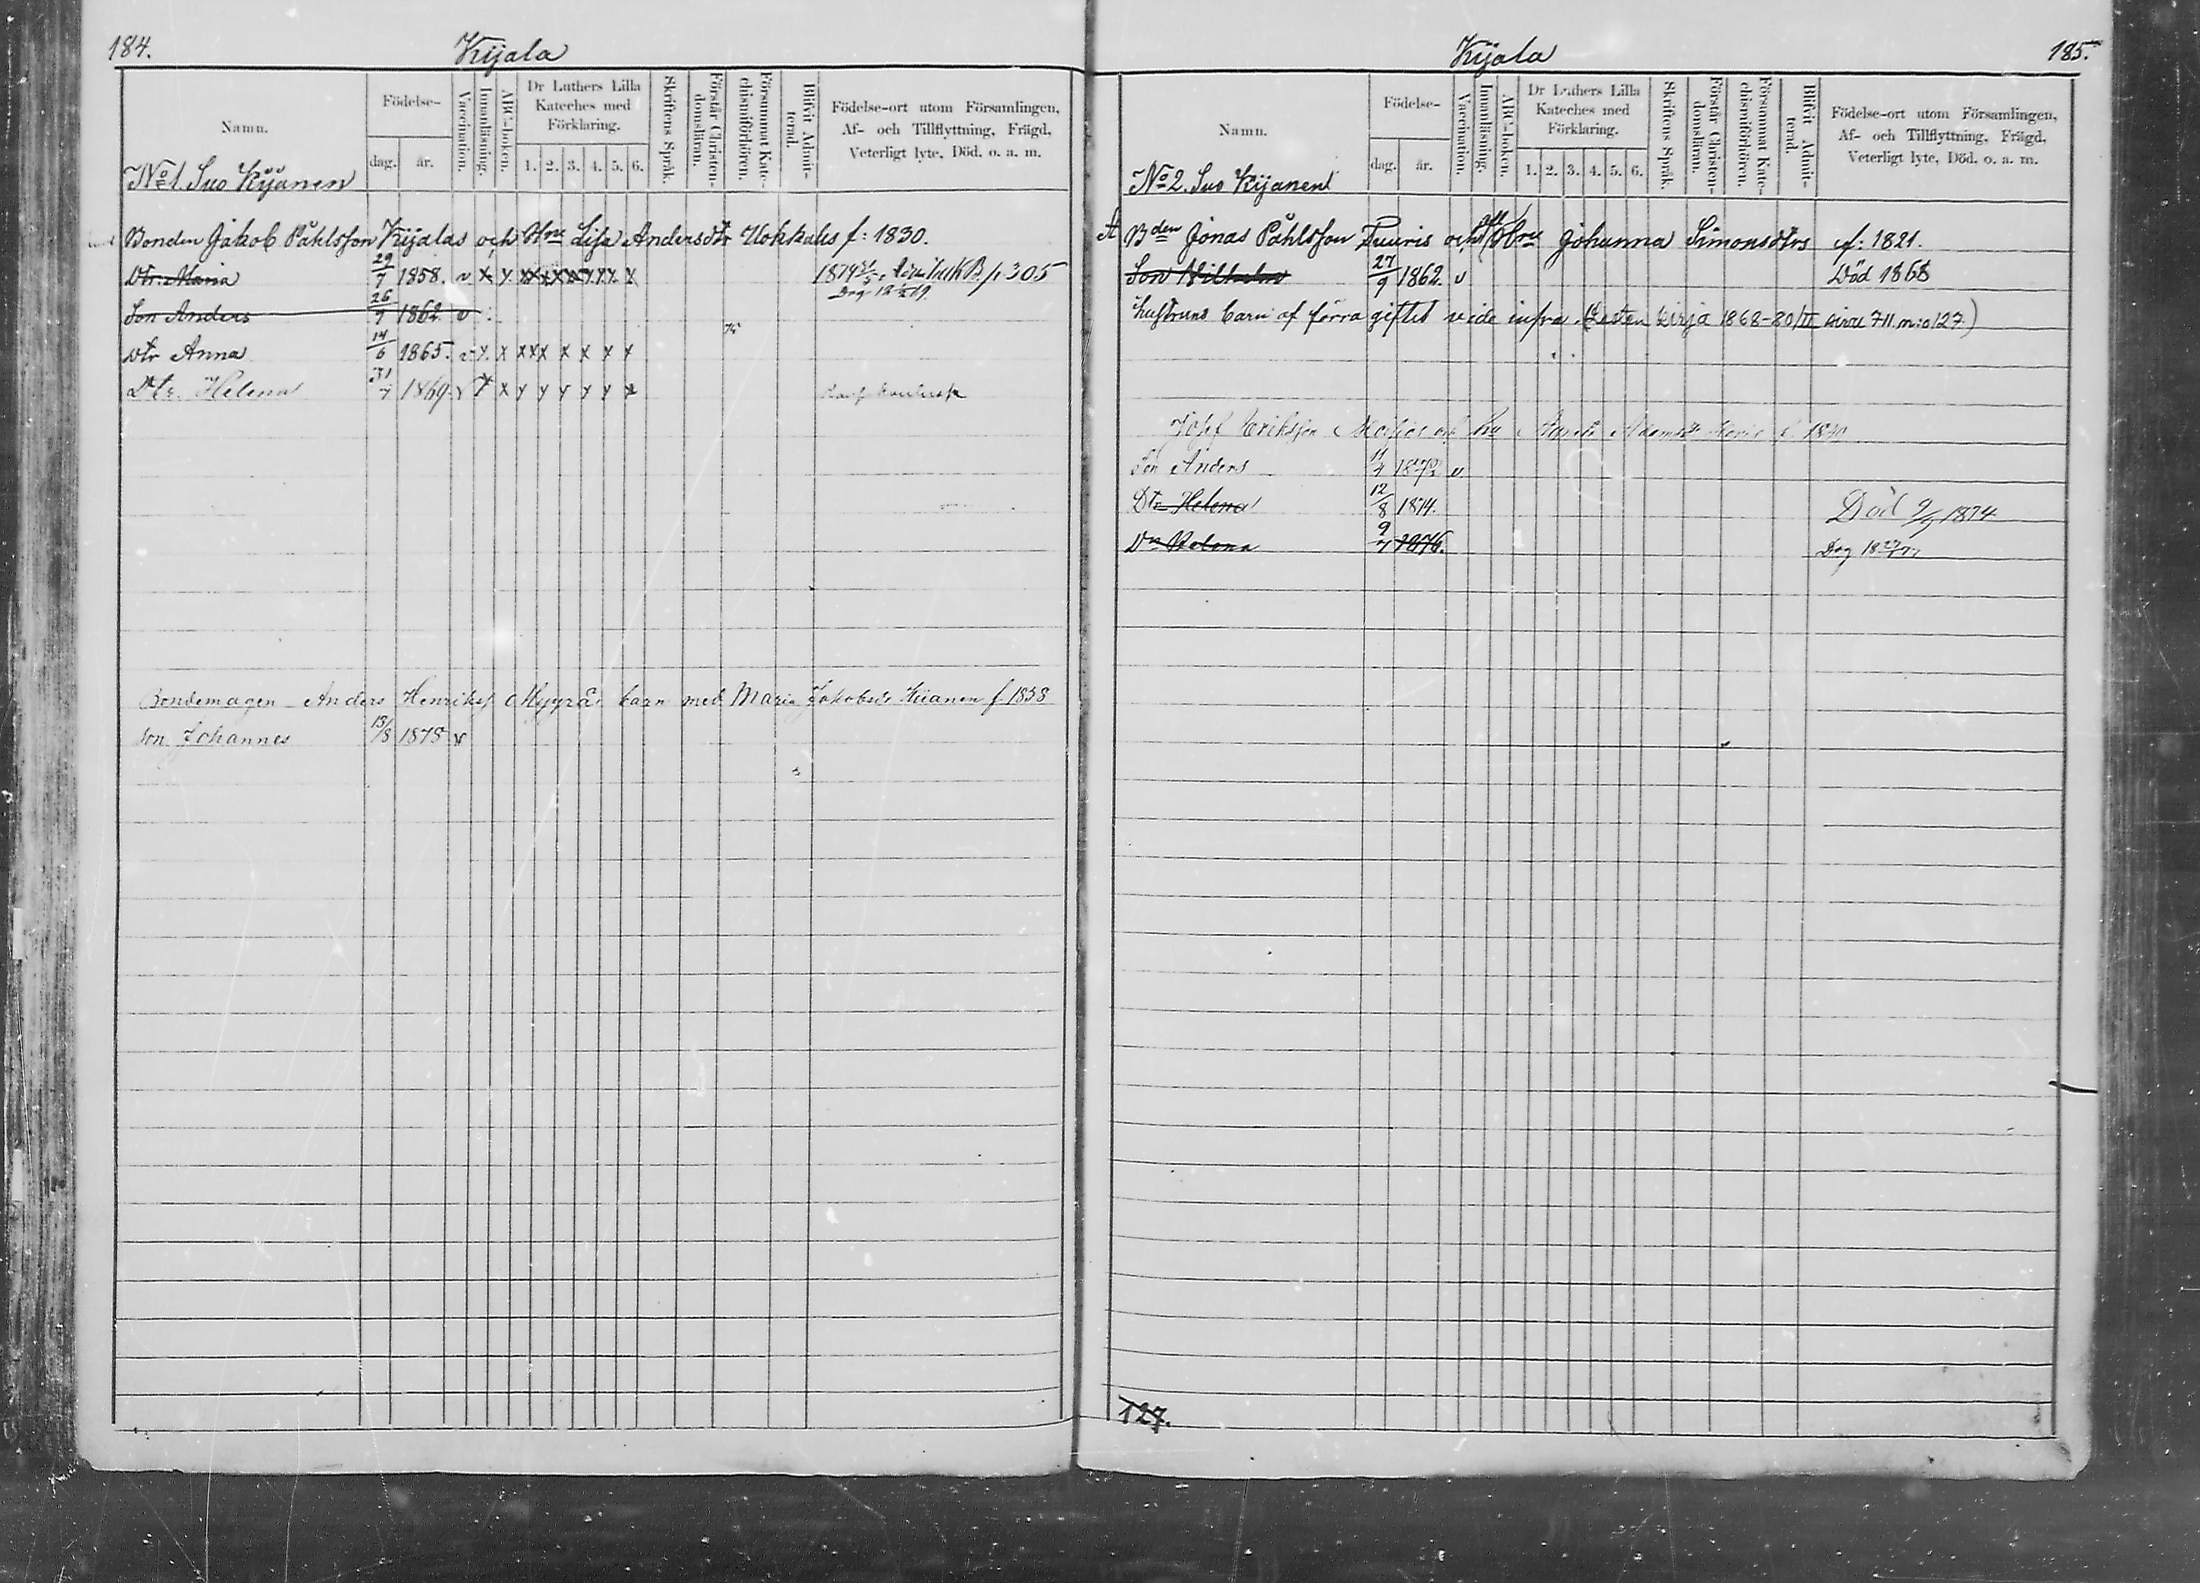 184.
Kijala
Namn.
Födelse-
dag.
år.
Vaccination.
Innanläsning.
ABC-boken.
Dr Luthers Lilla Kateches med Förklaring.
1. 2. 3. 4. 5. 6.
Skriftens Språk.
Förstår Christendomsläran.
Försummat Katechismiförhören.
Blifvit Admitterad.
Födelse-ort utom Församlingen, Af- och Tillflyttning, Frägd, Veterligt lyte, Död. o. a. m.
No 1. Suo Kijanen
Bonden Jakob Påhlsson Kijalas och Hru Lisa Andersdtr Uokkales f: 1830.
Dtr: Maria 29/7 1858. v x x 1879 p 305
Son Anders 26/9 1862 v
Dtr Anna 14/6 1865. v x x x x x x x x x
Dtr. Helena 31/7 1869. v x x x x x x x x
Bondemågen Anders Henriks. Myyrä: barn med Maria Jakobsdr Kiianen f. 1858
Son Johannes 13/8 1878 v
185.
Kijala
Namn.
Födelse-
dag.
år.
Vaccination.
Innanläsning.
ABC-boken.
Dr Luthers Lilla Kateches med Förklaring.
1. 2. 3. 4. 5. 6.
Skriftens Språk.
Förstår Christendomsläran.
Försummat Katechismiförhören.
Blifvit Admitterad.
Födelse-ort utom Församlingen, Af- och Tillflyttning, Frägd, Veterligt lyte, Död. o. a. m.
No 2. Suo Kijanen
A Bden Jonas Påhlsson Tuuris och Johanna Simonsdtrs f: 1821.
Son Wilhelm 27/9 1862. v Död 1868
Hustruns barn af förra giftet vide infra. (Lasten kirja 1868-80/II sivu 711 n:o 127)
Josef Eriksson och hu Adamsdr f. 1840
Son Anders 11/4 1872 v.
Dtr Helena 12/8 1874. Död 9/9 1874
Dr Helena 9/7 1876.
127.